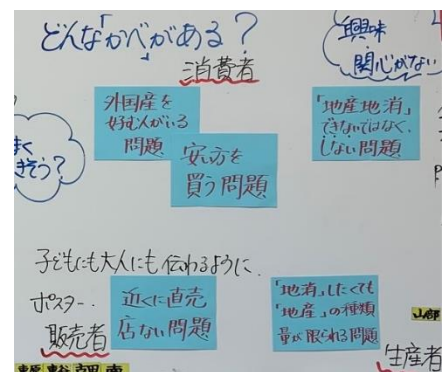 どんな「かべ」がある？
興味
関心がない
消費者
外国産を
好む人がいる
問題
安い方を
買う問題
「地産地消」
できないではなく、
しない問題
きそう？
子どもにも大人にも伝わるように、
ポスター…
販売者
近くに直売
店ない問題
「地消」したくても
「地産」の種類
量が限られる問題
生産者